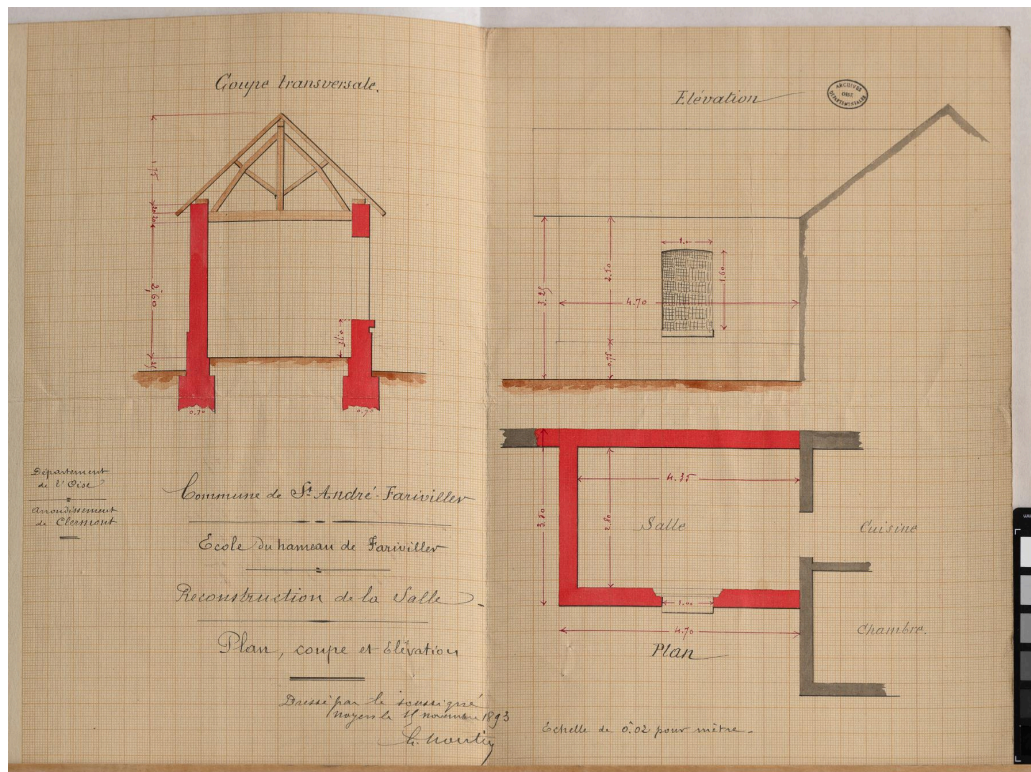 Coupe transversale.
1,75
0,20
2,60
0,70
0,70
Département
de l'Oise
Arrondissement
de Clermont
Commune de St André-Farivillers
Ecole du hameau de Farivillers
Reconstruction de la Salle
Plan, coupe et élévation
Dressé par le soussigné
Noyers le novembre 1893
Elévation
ARCHIVES
DÉPARTEMENTALES
OISE
1.00
3.25
2.50
4.70
1.60
0.75
4.35
Salle
Cuisine
1.00
4.70
Chambre
Plan
Echelle de 0.02 pour mètre.